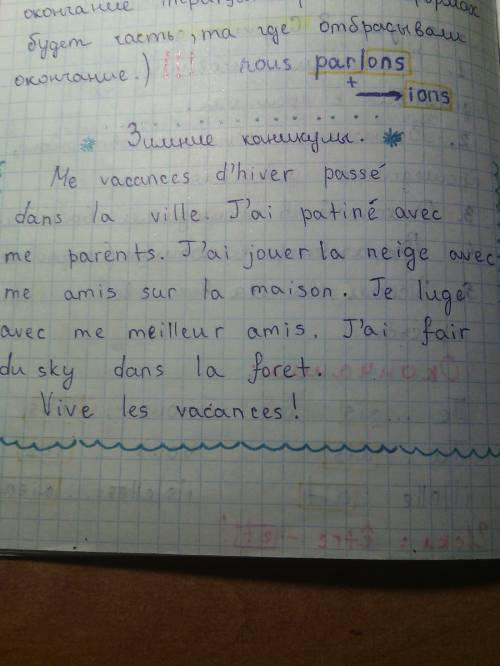 окончание
будет часть, та где отбрасывали
окончание.) !!! nous parlons
+ → ions
Зимние каникулы.
Me vacances d'hiver passé
dans la ville. J'ai patiné avec
me parents. J'ai jouer la neige avec
me amis sur la maison. Je lugé
avec me meilleur amis. J'ai fair
du sky dans la foret.
Vive les vacances!